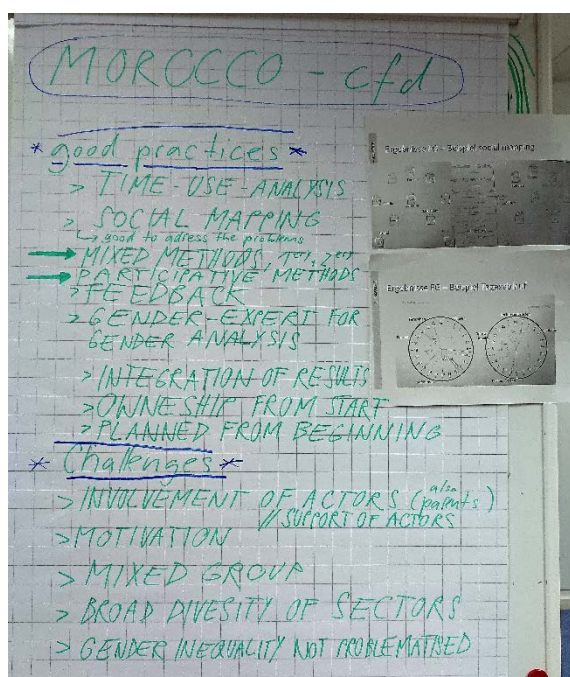 MOROCCO - cfd
* good practices *
> TIME-USE-ANALYSIS
> SOCIAL MAPPING
↳ good to adress the problems
→ MIXED METHODS,
→ PARTICIPATIVE METHODS
> FEEDBACK
> GENDER-EXPERT FOR
GENDER ANALYSIS
> INTEGRATION OF RESULTS
> OWNESHIP FROM START
> PLANNED FROM BEGINNING
* Challenges *
> INVOLVEMENT OF ACTORS (also parents)
// SUPPORT OF ACTORS
> MOTIVATION
> MIXED GROUP
> BROAD DIVESITY OF SECTORS
> GENDER INEQUALITY NOT PROBLEMATISED
Ergebnisse FG – Beispiel social mapping
Ergebnisse FG – Beispiel